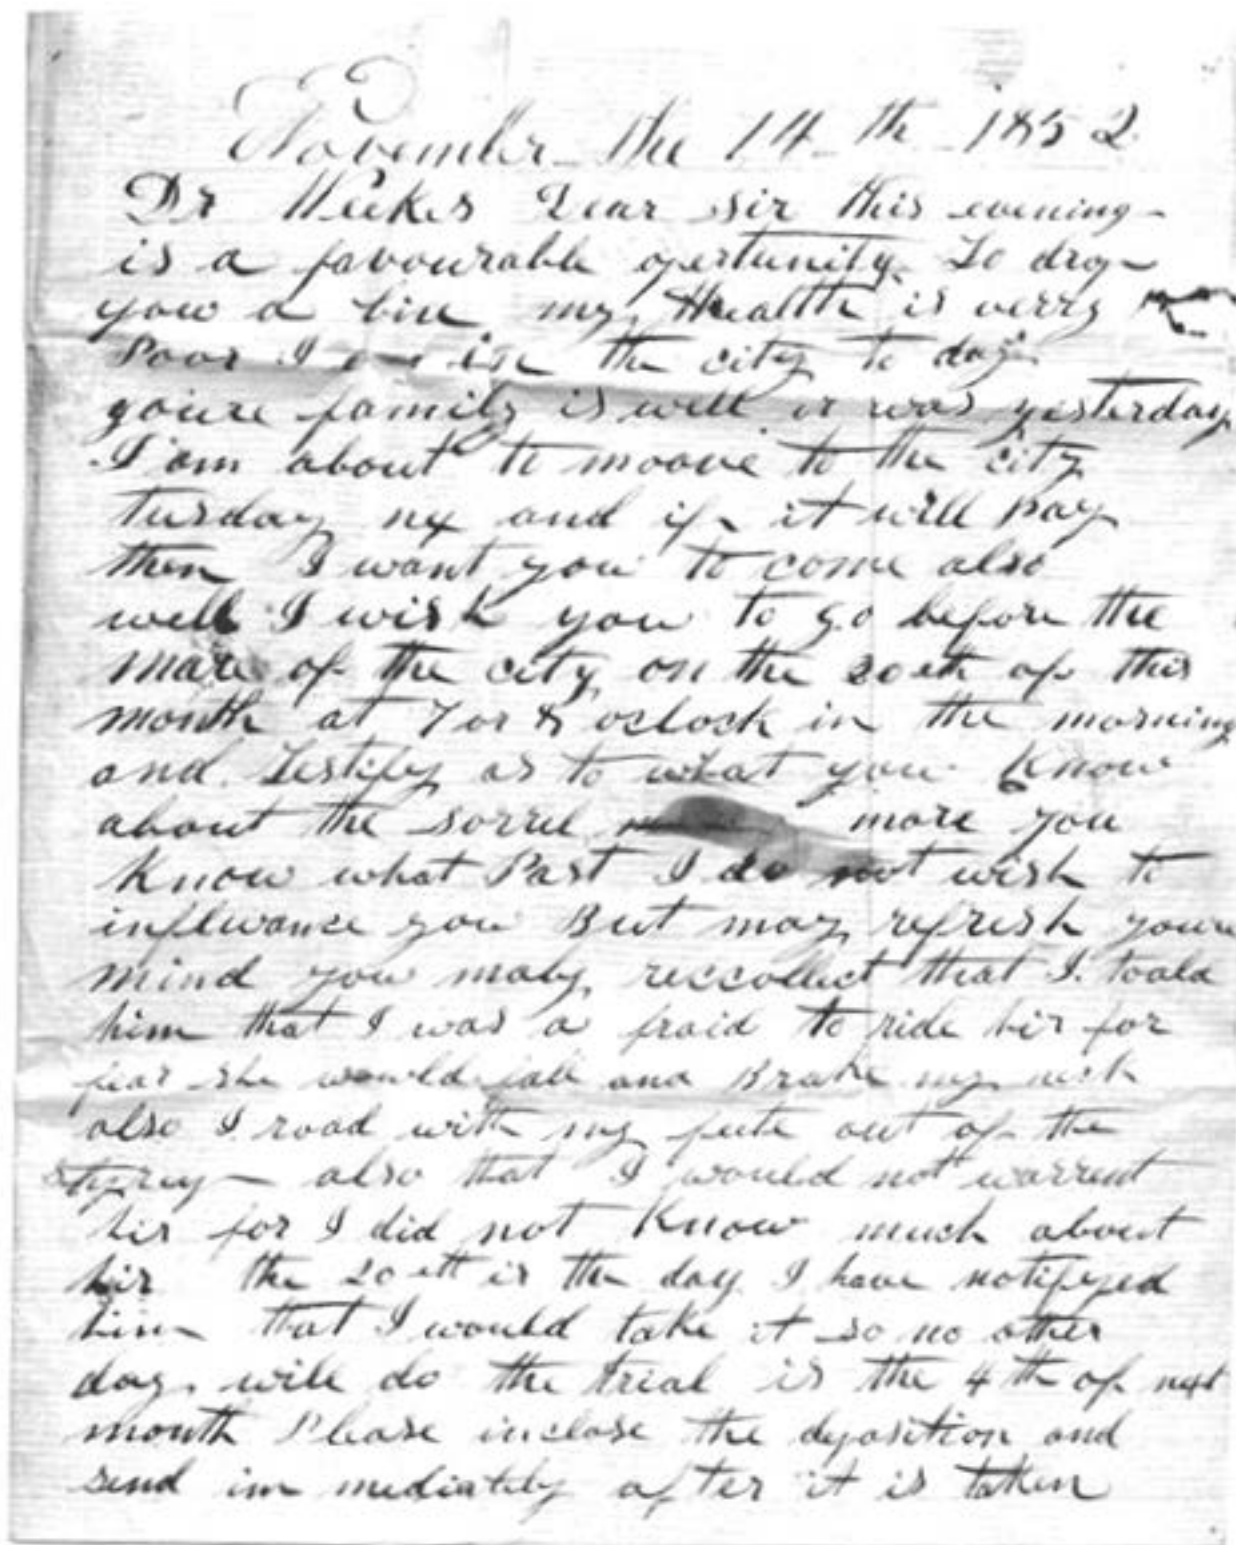 November the 14th 1852
Dr Weekes Dear sir this evening
is a favourable opertunity To drop
you a line my Healtth is verry
Poor I am in the city to day
youre family is well or was yesterday
I am about to moove to the city
tusday nx and if it will pay
then I want you to come also
well I wish you to go before the
mare of the city on the 20eth of this
month at 7 or 8 oclock in the morning
and Testify as to what you Know
about the sorrel mare you
Know what Past I do not wish to
influance you But may refresh youre
mind you maby reccollect that I toald
him that I was a fraid to ride hir for
fear she wowld fall and Brake my neck
also I road with my feete out of the
also that I would not warrent
hir for I did not Know much about
hir the 20eth is the day I have notifyed
him that I would take it so no other
day will do the trial is the 4th of next
month Please inclose the deposition and
send im mediately after it is taken